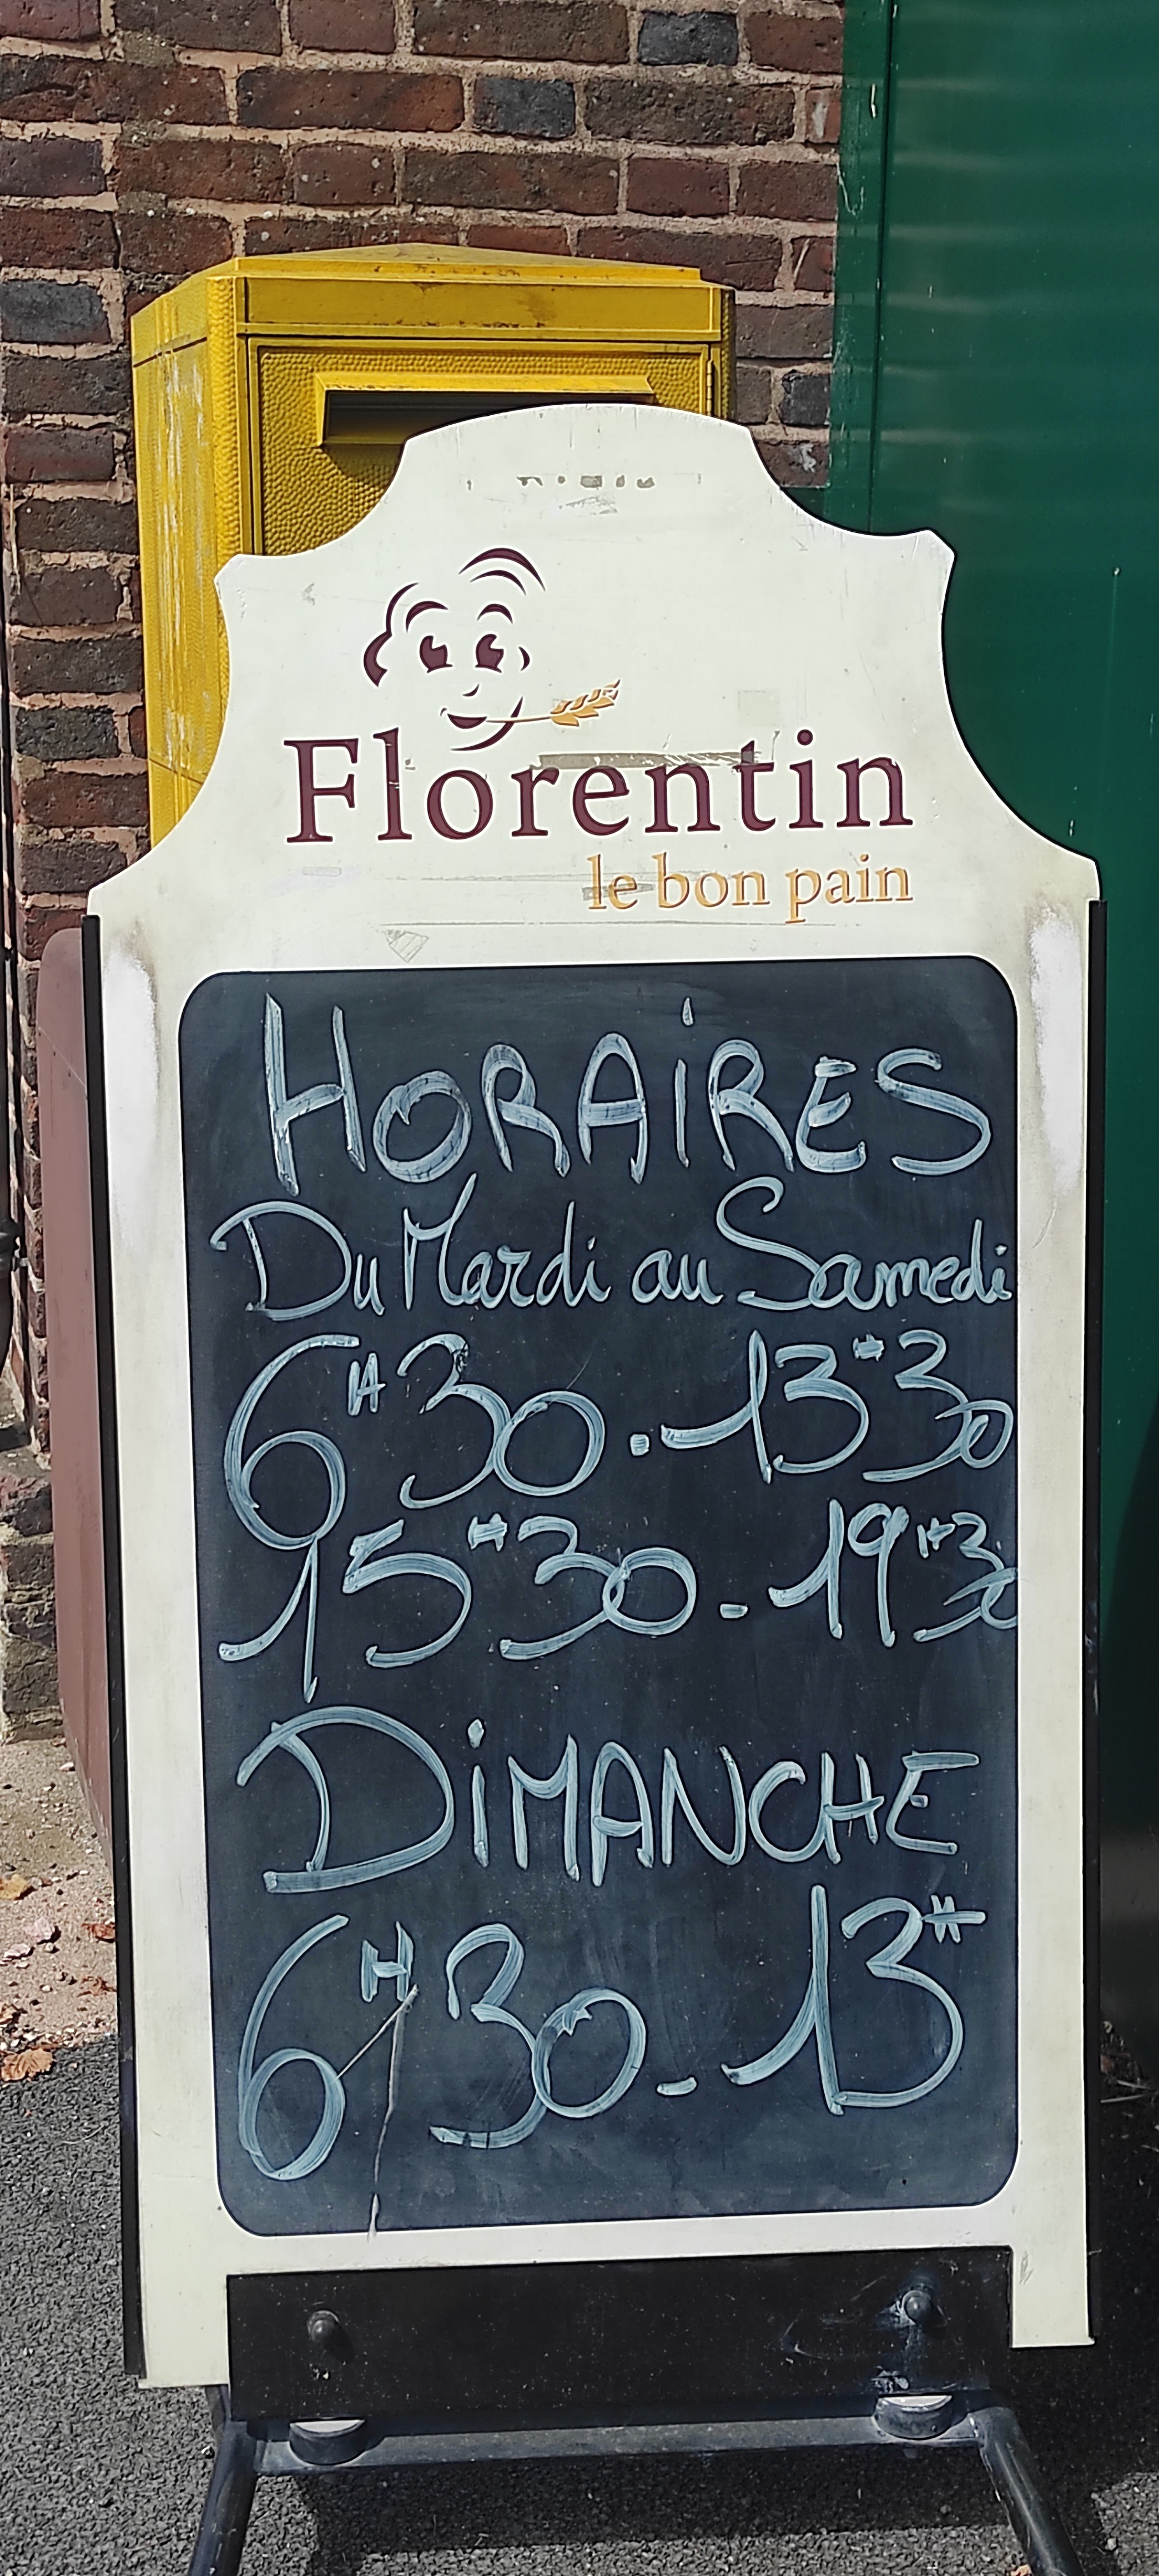 Florentin
le bon pain
HORAiRES
Du Mardi au Samedi
6H30.-13H30
15H30-19H30
DiMANCHE
6H30-13H